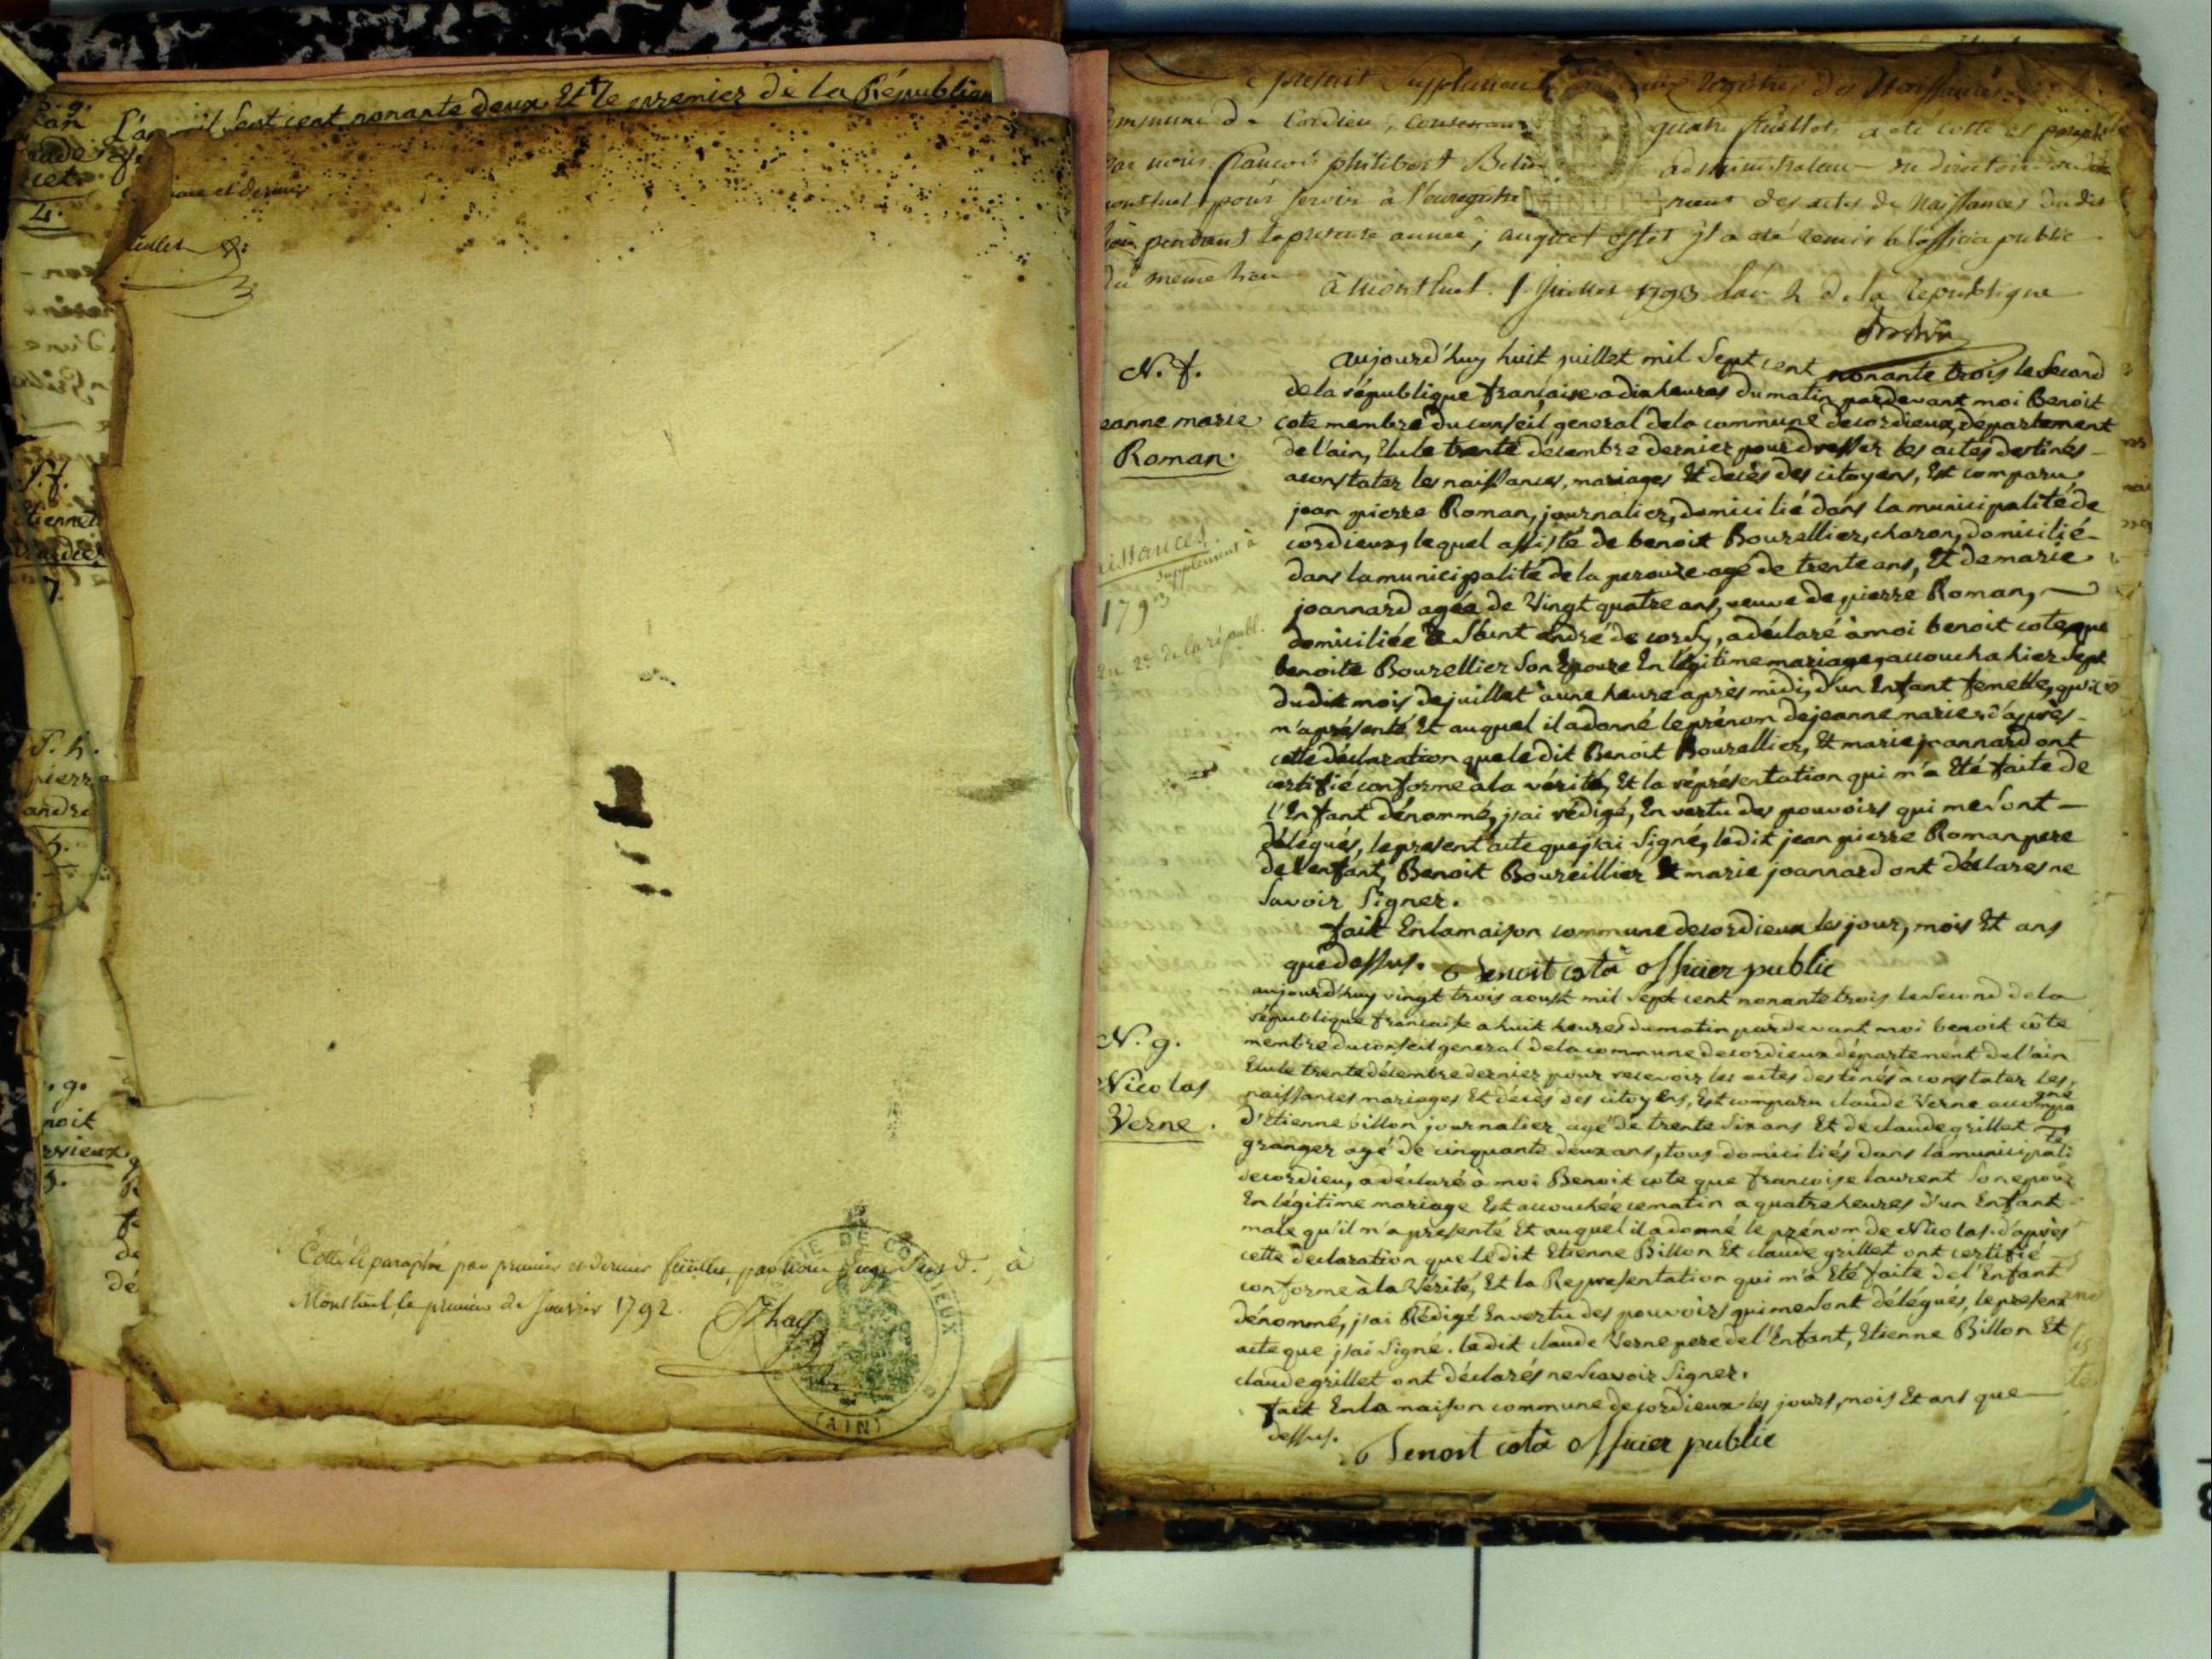 L'an mil Sept cent nonante deux Et le premier de la République
et dernier
Cotté et paraphé par premier et dernier feüillet, par nous juge à
Montluel le premier de Janvier 1792.
MAIRIE DE CORDIEUX
(AIN)
S.f.
Etiennet
S.h.
pierre
andré
Le présent Supplément aux registres des Naissances
commune de Cordieu, contenant quatre feuillets, a été cotté et paraphé
par nous François philibert administrateur du directoire
montluel pour servir à l'enregistrement des actes de Naissances dudit
lieu pendant la présente année; auquel effet il a été remis à l'officier public
du même lieu
à Montluel. 1 Juillet 1793 L'an 2 de la République
N. f.
jeanne marie
Roman.
naissances.
Supplément à
1793
an 2e de la républ.
aujourd'huy huit juillet mil Sept cent nonante trois le Second
de la république française a dix heures du matin pardevant moi Benoit
cote membre du conseil general de la commune de cordieux, département
de l'ain, Elu le trente décembre dernier pour dresser les actes destinés
a constater les naissances, mariages Et decès des citoyens, Est comparu
jean pierre Roman, journalier, domicilié dans la municipalité de
cordieux, lequel assisté de benoit Bourellier, charon, domicilié
dans la municipalité de la perouze agé de trente ans, Et de marie
joannard agée de Vingt quatre ans, veuve de pierre Roman,
domiciliée a Saint andré de corcy, a déclaré à moi benoit cote que
benoite Bourellier Son Epouze En légitime mariage, accoucha hier Sept
dudit mois de juillet à une heure après midi, d'un Enfant femelle, qu'il
m'a présenté Et auquel il a donné le prénom de jeanne marie. d'après
cette déclaration que le dit Benoit Bourellier, Et marie joannard ont
certifié conforme a la vérité, Et la réprésentation qui m'a Eté faite de
l'Enfant dénommé, j'ai rédigé, En vertu des pouvoirs qui me Sont
délégués, le present acte que j'ai Signé, ledit jean pierre Roman pere
de l'enfant, Benoit Boureillier Et marie joannard ont déclarés ne
Savoir Signer.
fait En la maison commune de cordieux les jour, mois Et ans
que dessus. Benoit cota officier public
N. g.
Nicolas
Verne.
aujourd'huy vingt trois aoust mil Sept cent nonante trois le Second de la
république francaise a huit heures du matin pardevant moi benoit côte
membre du conseil general de la commune de cordieux département de l'ain
Elu le trente décembre dernier pour recevoir les actes destinés a constater les
naissances mariages Et décès des citoyens, Est comparu claude Verne accompagné
d'Etienne billon journalier agé de trente Six ans Et de claude grillet
granger agé de cinquante deux ans, tous domiciliés dans la municipalité
de cordieu, a déclaré à moi Benoit cote que francoise laurent Son epouz
En légitime mariage Est accouchée ce matin a quatre heures d'un Enfant
male qu'il m'a presenté Et auquel il a donné le prénom de Nicolas. d'après
cette declaration que le dit Etienne Billon Et claude grillet ont certifié
conforme à la Vérité, Et la Representation qui m'a Eté faite de l'Enfant
dénommé, j'ai Rédigé En vertu des pouvoirs qui me Sont délégués, le present
acte que j'ai Signé. ledit claude Verne pere de l'Enfant, Etienne Billon Et
claude grillet ont déclarés ne Scavoir Signer.
fait En la maison commune de cordieux les jours, mois Et ans que
dessus.
Benoit cotà officier public